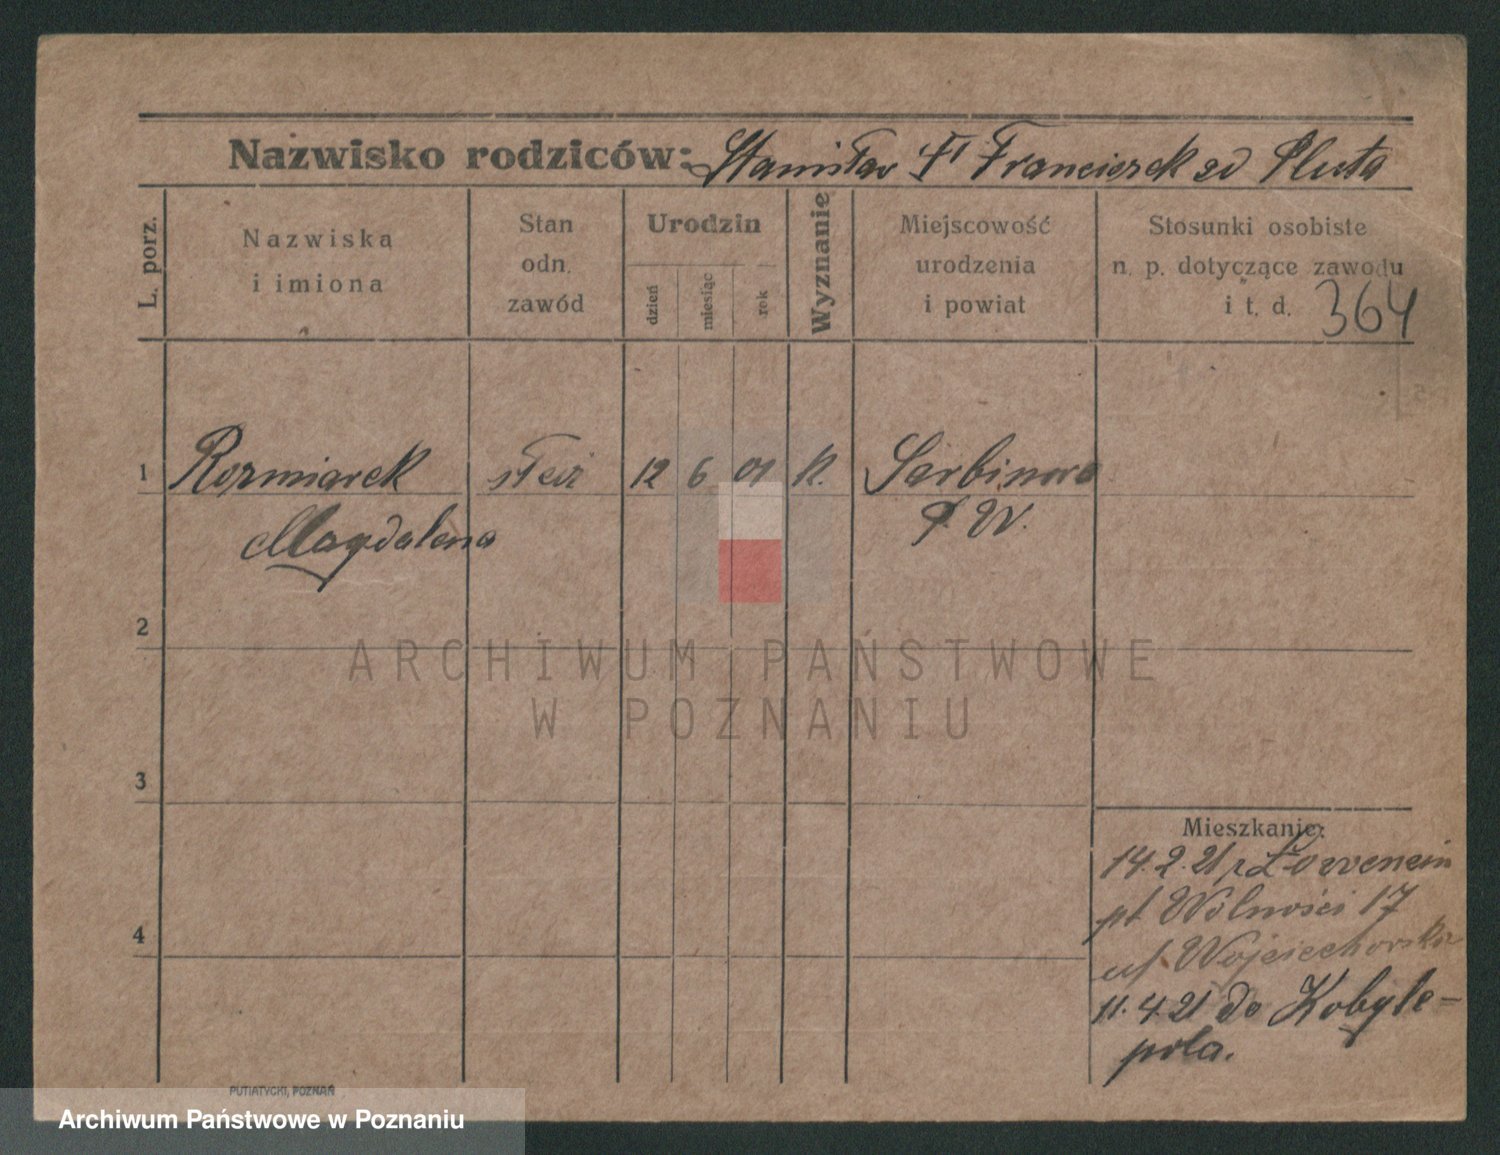 Nazwisko rodziców: Stanisław Franciszek zd Pluta
L. porz.
Nazwiska
i imiona
Stan
odn.
zawód
Urodzin
dzień
miesiąc
rok
Wyznanie
Miejscowość
urodzenia
i powiat
Stosunki osobiste
n. p. dotyczące zawodu
i t. d. 364
1 Rozmiarek służ 12 6 01 K. Sarbinowo
Magdalena P. W.
2
ARCHIWUM PAŃSTWOWE
W POZNANIU
3
Mieszkanie:
14.2.21 z Lowencin
pl Wolności 17
ul Wojciechowska
4
11.4.21 do Kobyle-
pola.
PUTIATYCKI, POZNAŃ
Archiwum Państwowe w Poznaniu